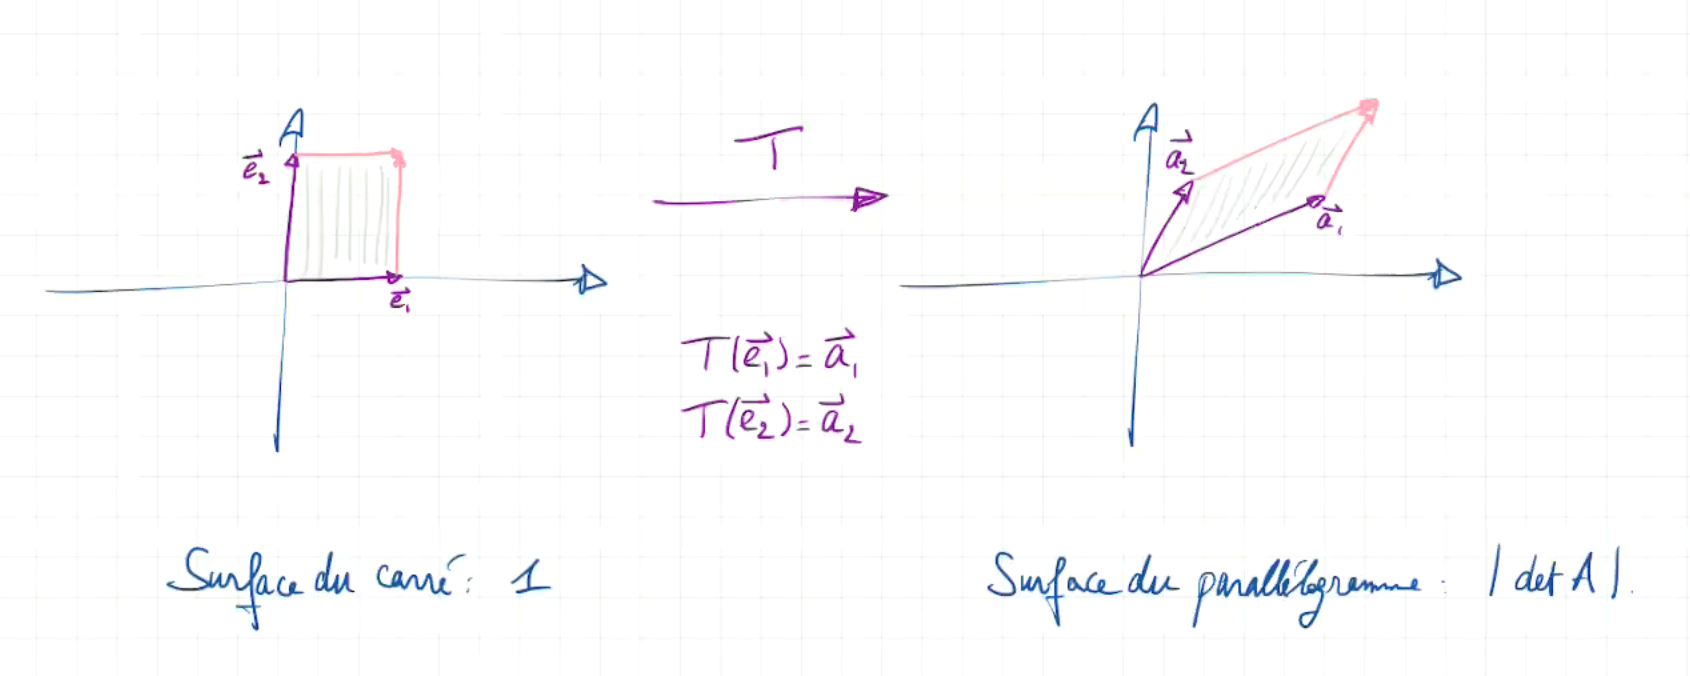 T
$\vec{e}_2$
$\vec{a}_2$
$\vec{a}_1$
$\vec{e}_1$
$T(\vec{e}_1) = \vec{a}_1$
$T(\vec{e}_2) = \vec{a}_2$
Surface du carré : 1
Surface du parallélogramme : |det A|.